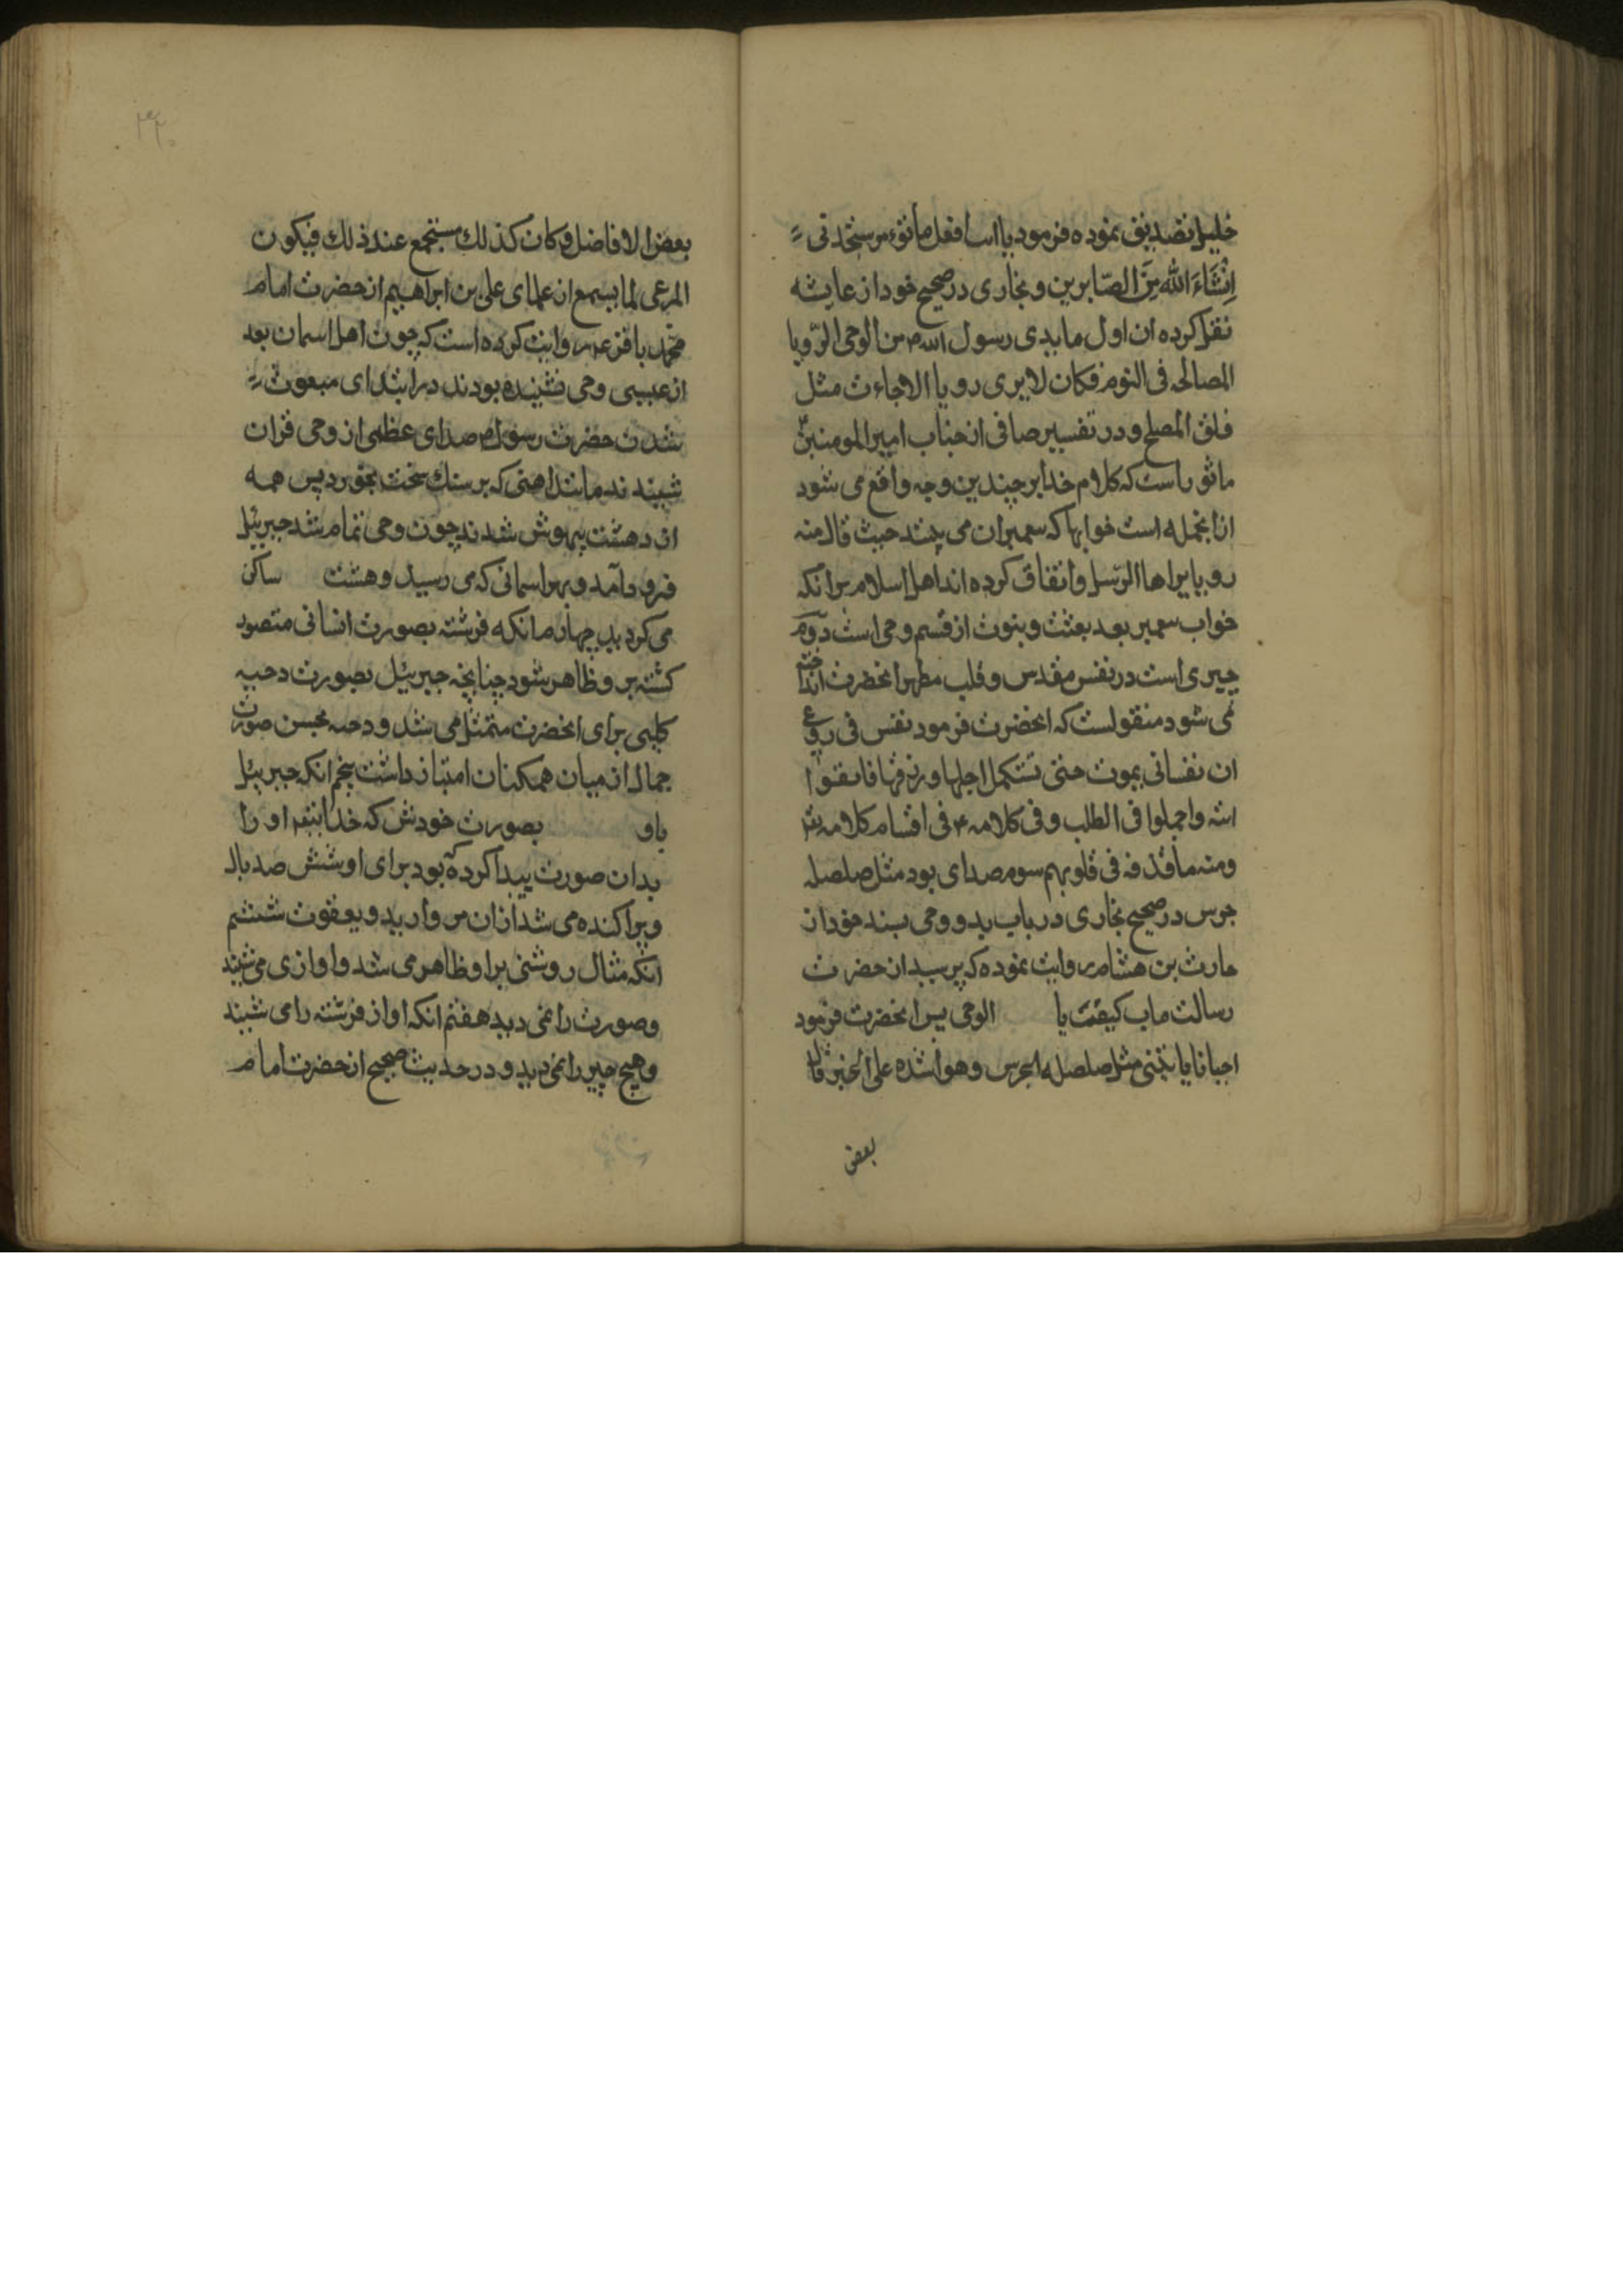 خلیل تصدیق نموده فرمود یا ابت افعل ما تؤمر ستجدنی
اِنْشَاءَ اللّه مِنَ الصّابرین و بخاری در صحیح خود از عایشه
نقل کرده ان اول ما بدی رسول الله م من الوحی الرّویا
الصالحه فی النوم فکان لا یری رویا الا جاءت مثل
فلق الصلح و در تفسیر صافی از جناب امیر المومنین
ماثور است که کلام خدا بر چندین وجه واقع می شود
از انجمله است خوابها که پیمبران می بینند حیث قال منه
رویا یراها الرّسل و اتفاق کرده اند اهل اسلام بر انکه
خواب پیمبر بعد بعثت و نبوت از قسم وحی است دوم
چیزی است در نفس مقدس و قلب مطهر انحضرت انداخته
می شود منقولست که انحضرت فرمود نفس فی روعی
ان نفسا نی یموت حتی تستکمل اجلها و رزقها فاتقوا
الله و اجملوا فی الطلب و فی کلامه ع فی اقسام کلامه تع
ومنه ما قذفه فی قلوبهم سوم صدای بود مثل صلصله
جرس در صحیح بخاری در باب بدو وحی بسند خود از
حارث بن هشام روایت نموده که پرسید از حضرت
رسالت ماب کیفت یا الوحی پس انحضرت فرمود
احیانا یاتینی مثل صلصله الجرس و هو اشده علی الخبر قال
بعض
بعض الافاضل و کان کذلك یستجمع عند ذلك فیکون
المرعی لما یسمع از علمای علی بن ابراهیم از حضرت امام
محمّد باقر ع روایت کرده است که چون اهل اسمان بعد
از عیسی وحی نشنیده بودند در ابتدای مبعوث
شدن حضرت رسول م صدای عظمی از وحی قران
شنیدند مانند اهنی که بر سنك سخت بخورد پس همه
از دهشت بیهوش شدند چون وحی تمام شد جبرییل
فرود آمد و بهر اسمانی که می رسید و هشت ساکن
می کردید چهارم انکه فرشته بصورت انسانی متصور
کشته بر و ظاهر شود چنانچه جبرییل بصورت دحیه
کلبی برای انحضرت متمثل می شد و دحیه بحسن صورت
جمال از میان همکنان امتیاز داشت پنجم انکه جبرییل
باو بصورت خودش که خدا بتع او را
بدان صورت پیدا کرده بود برای او شش صد بال
و پراکنده می شد ازان مروارید و یعقوت ششم
انکه مثال روشنی براو ظاهر می شد و اوازی می شنید
و صورت را نمی دید هفتم انکه اواز فرشته را می شنید
و هیچ چیز را نمی دید و در حدیث صحیح از حضرت امام